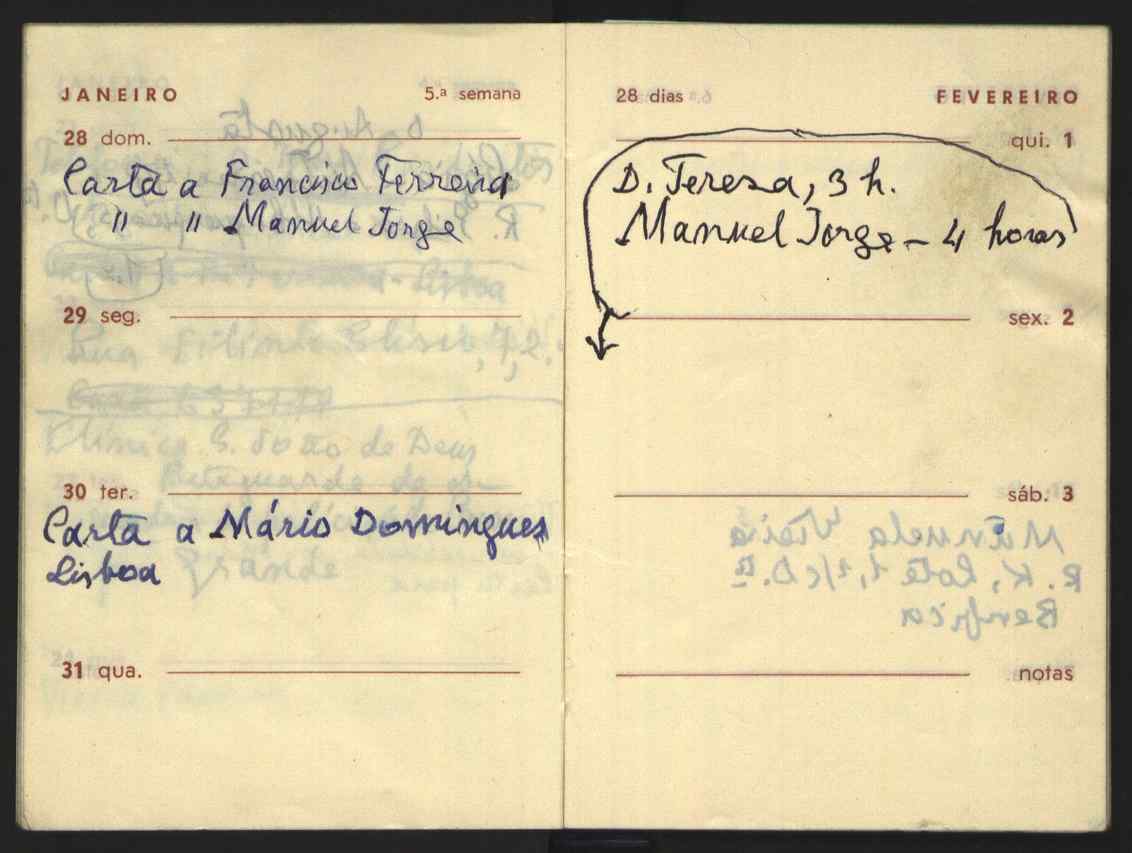 JANEIRO 5.ª semana
28 dom.
Carta a Francisco Ferreira
" " Manuel Jorge
29 seg.
30 ter.
Carta a Mário Domingues
Lisboa
31 qua.
28 dias FEVEREIRO
qui. 1
D. Teresa, 3 h.
Manuel Jorge - 4 horas
sex. 2
sáb. 3
Manuela Vieira
R. K, Lote 1, r/c D.to
Benfica
notas